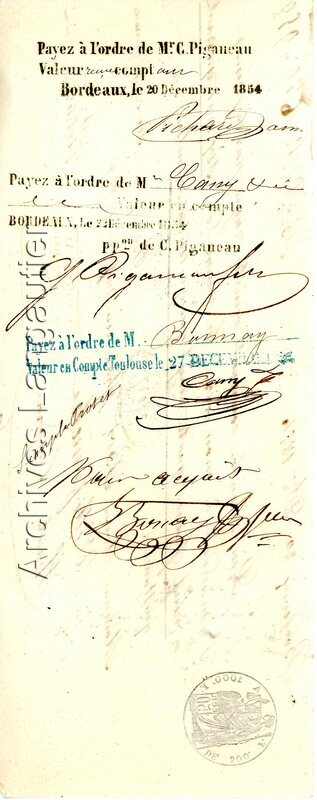 Payez à l'ordre de Mr. C. Piganeau
Valeur comptant
Bordeaux, le 20 Décembre 1854
Payez à l'ordre de M Cany
Valeur en compte
BORDEAUX, Le 22 Décembre 1854
ppon de C. Piganeau
Piganeau
Payez à l'ordre de M. Bonnay
Valeur en Compte Toulouse le 27 DECEMBRE
Cany
Pour acquit
Archives Langautier